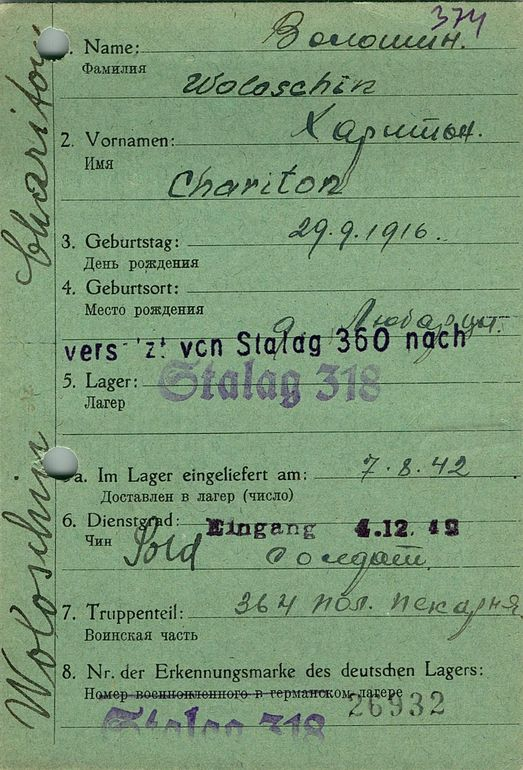 374
1. Name: Волошин.
Фамилия
Woloschin
2. Vornamen: Харитон.
Имя
Chariton
3. Geburtstag: 29.9.1916.
День рождения
4. Geburtsort:
Место рождения
Любарцы.
vers 'z! von Stalag 360 nach
5. Lager: Stalag 318
Лагер
a. Im Lager eingeliefert am: 7.8.42
Доставлен в лагер (число)
6. Dienstgrad: Eingang 4.12.42
Чин Sold солдат.
7. Truppenteil: 364 пол. пекарня
Воинская часть
8. Nr. der Erkennungsmarke des deutschen Lagers:
Номер военнопленного в германском лагере
26932
Stalag 318
Woloschin Chariton